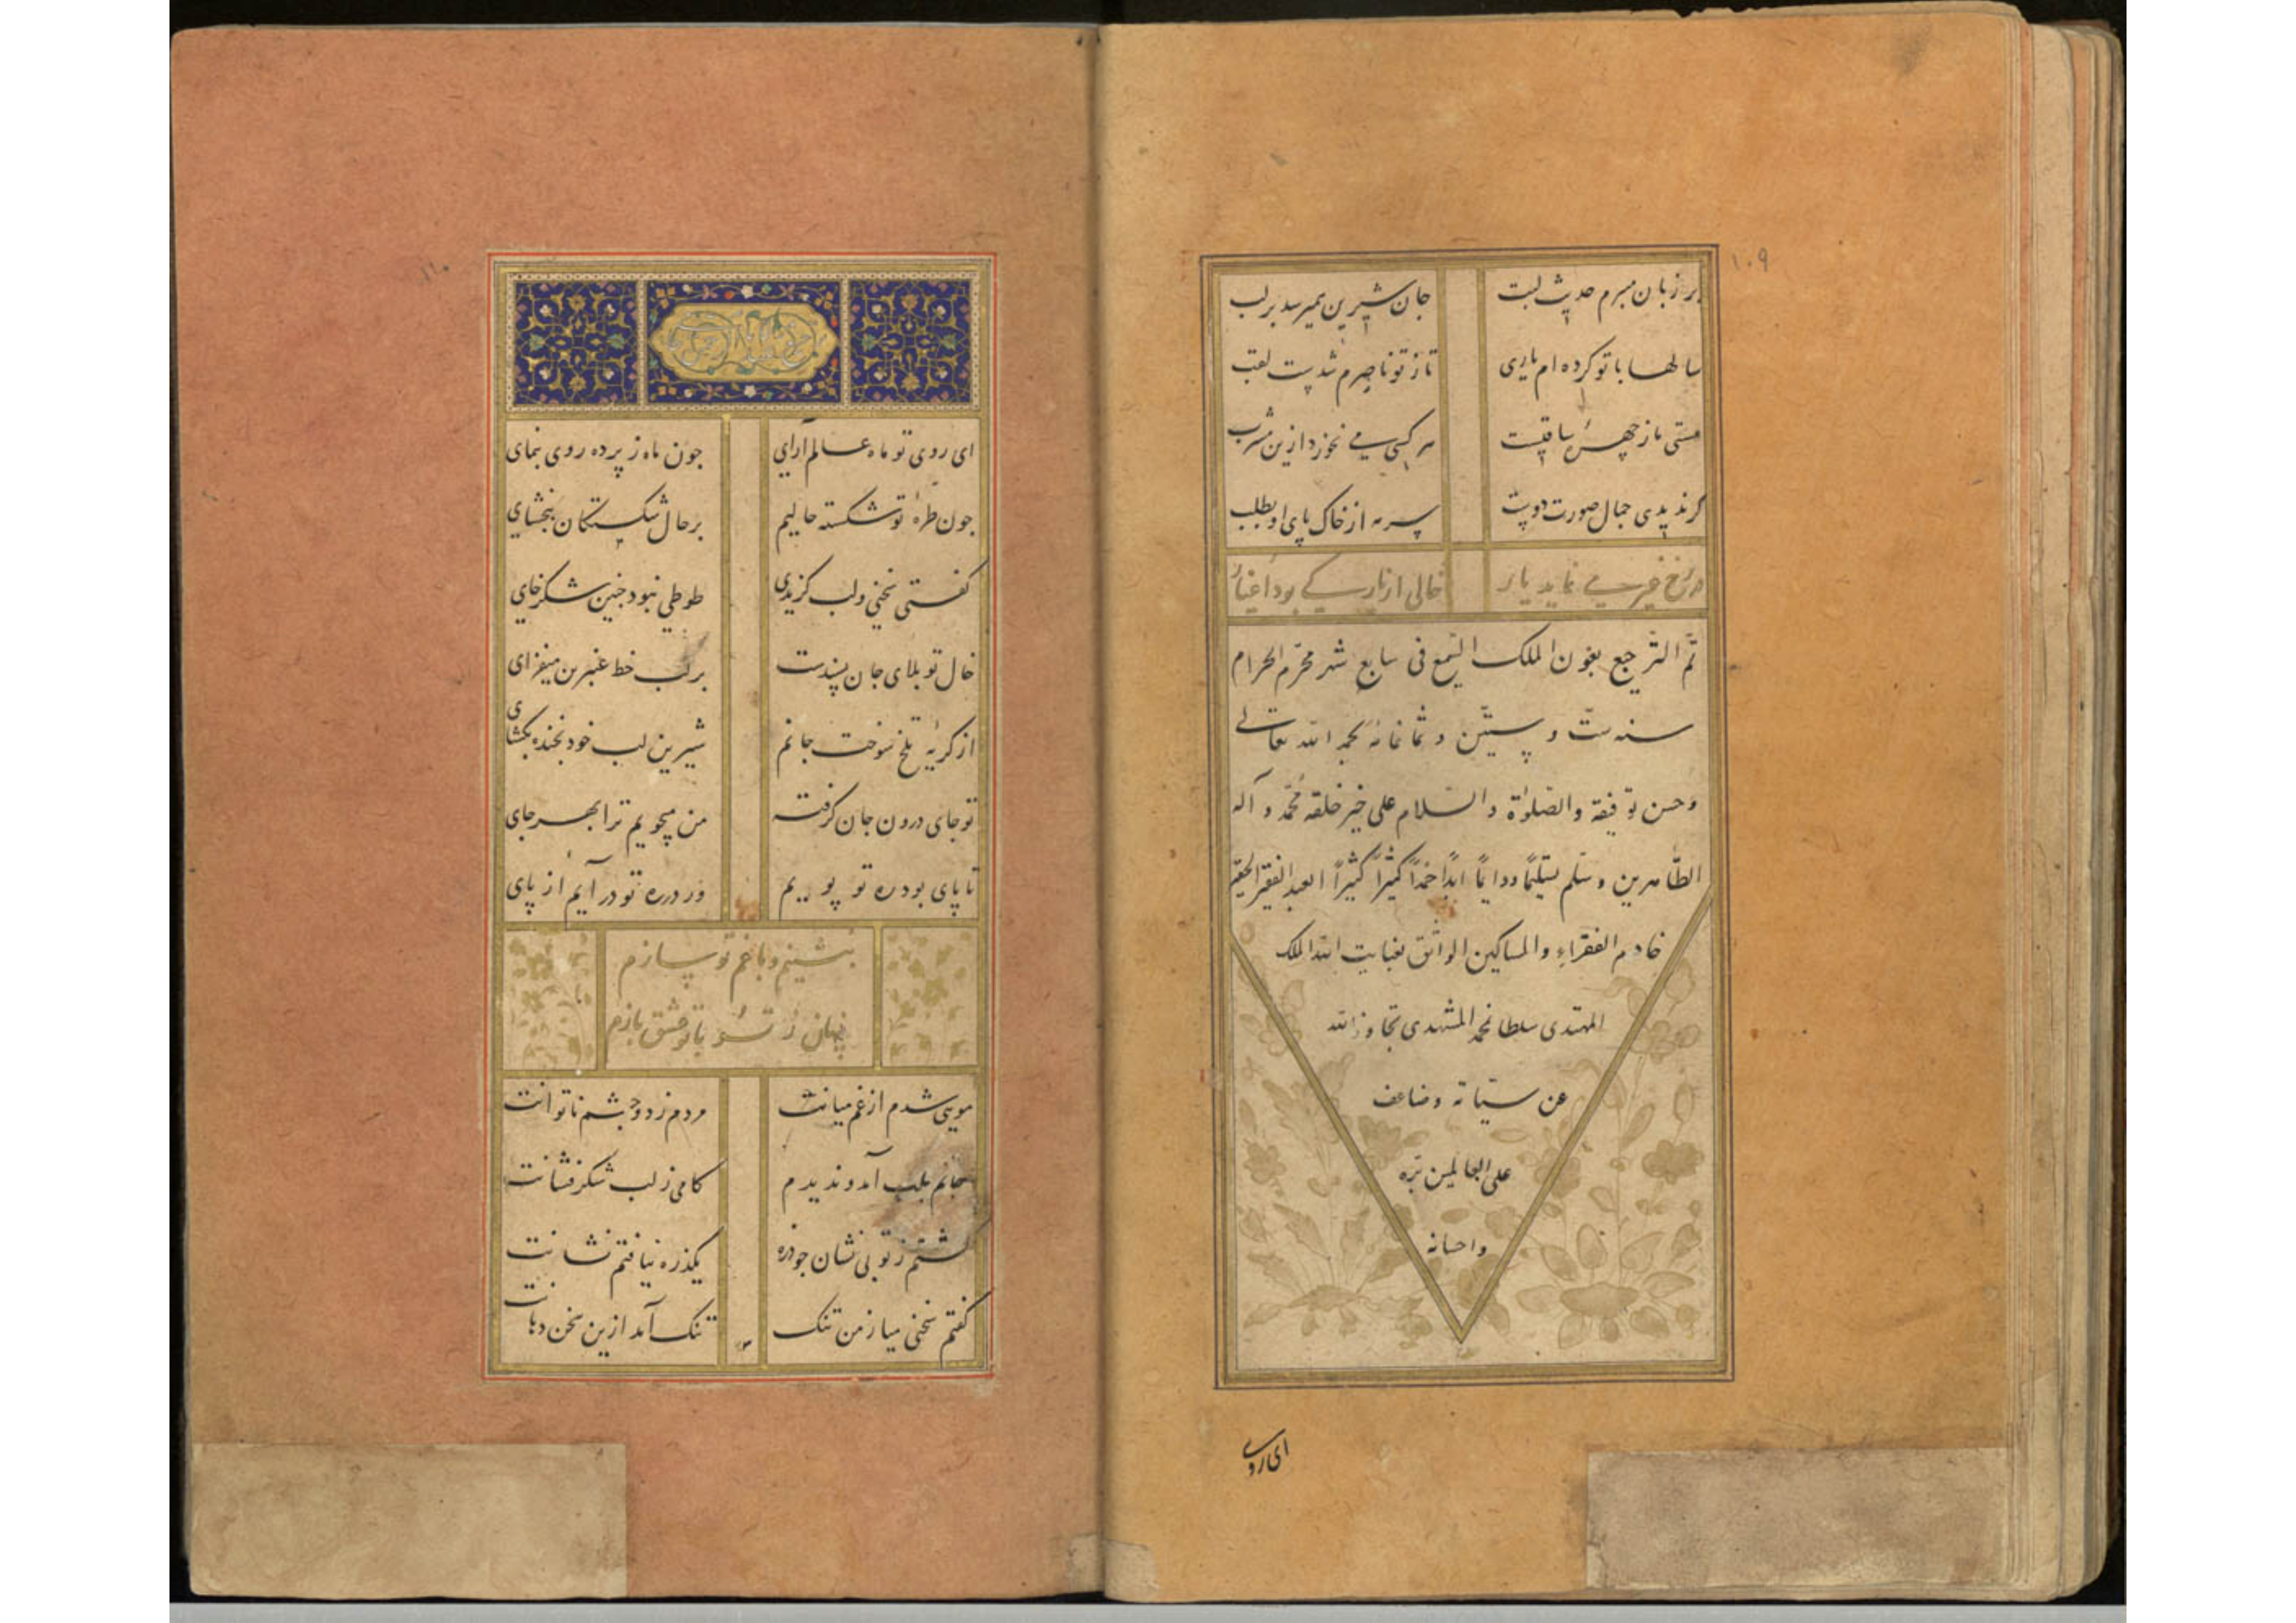 ۱۰۹
بر زبان میبرم حدیث لبت جان شیرین همیرسد بر لب
سالها با تو کرده ام یاری تا ز تو ناصرم شدست لقب
مستی ما ز چهرهٔ ساقیست هر کسی می نخورد ازین مشرب
گر ندیدی جمال صورت دوست سرمه از خاک پای او بطلب
رخ می نماید یار خالی از نار کی بود اغیار
تم الترجیع بعون الملک السمیع فی سابع شهر محرم الحرام
سنه ست و ستین و ثمانمائه بحمد الله تعالی
وحسن توفیقه والصلوٰة والسلام علی خیر خلقه محمد و آله
الطاهرین وسلم تسلیمًا ودایمًا ابدًا حمدًا کثیرًا کثیرًا العبد الفقیر الحقیر
خادم الفقراء والمساکین الواثق بعنایت الله الملک
المهتدی سلطانمحمد المشهدی تجاوز الله
عن سیّاته وضاعف
علی العالمین برّه
واحسانه
ای روی
۱۱۰
ای روی تو ماه عالم آرای جون ماه ز پرده روی بنمای
جون طرهٔ تو شکسته حالیم بر حال شکستکان ببخشای
کفستی سخنی ولب کزیدی طوطی نبود جنین شکرخای
خال تو بلای جان پسندست بر لب خط عنبرین میفزای
از کریهٔ تلخ سوخت جانم شیرین لب خود بخنده بکشای
تو جای درون جان کرفته من میجویم ترا بهر جای
تا پای بود ره تو پویم ور در ره تو در آیم از پای
بنشینم و با غم تو سازم
پنهان ز تو با تو عشق بازم
مویی شدم از غم میانت مردم ز دو جشم ناتوانت
جانم بلب آمد و ندیدم کامی ز لب شکرفشانت
کشتم ز تو بی نشان جو ذره یکذره نیافتم نشانت
کفتم سخنی میاز من تنک تنک آمد ازین سخن دهانت